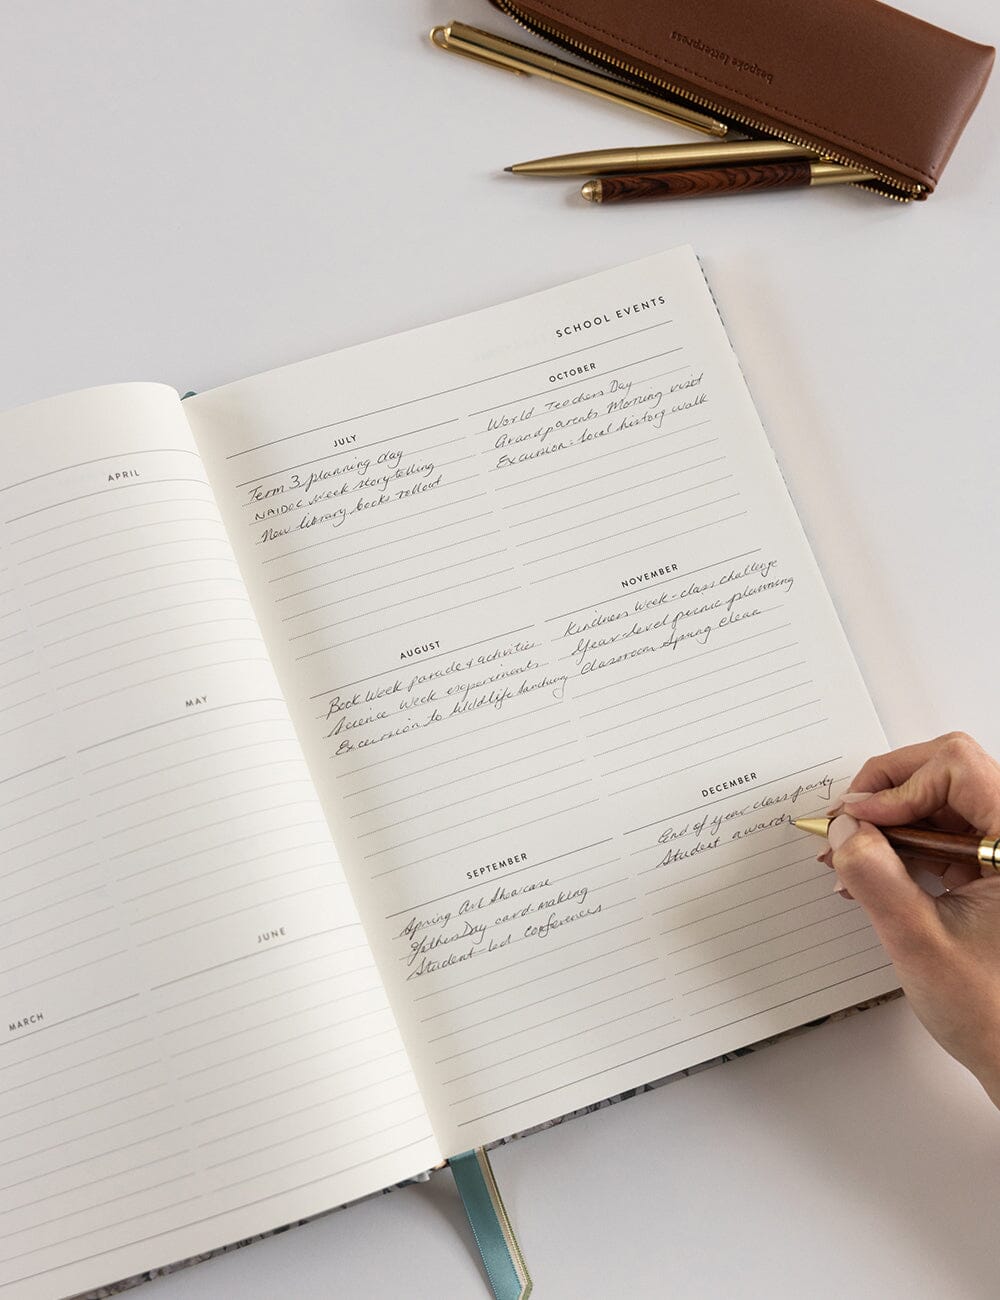 bespoke letterpress
SCHOOL EVENTS
APRIL
MAY
JUNE
MARCH
JULY
Term 3 planning day
NAIDOC week storytelling
New library books rollout
AUGUST
Book Week parade & activities
Science Week experiments
Excursion to Wildlife Sanctuary
SEPTEMBER
Spring Art Showcase
Fathers Day card-making
Student-led conferences
OCTOBER
World Teachers Day
Grandparents Morning visit
Excursion: local history walk
NOVEMBER
Kindness Week - class challenge
Year-level picnic planning
Classroom Spring clean
DECEMBER
End of year class party
Student awards